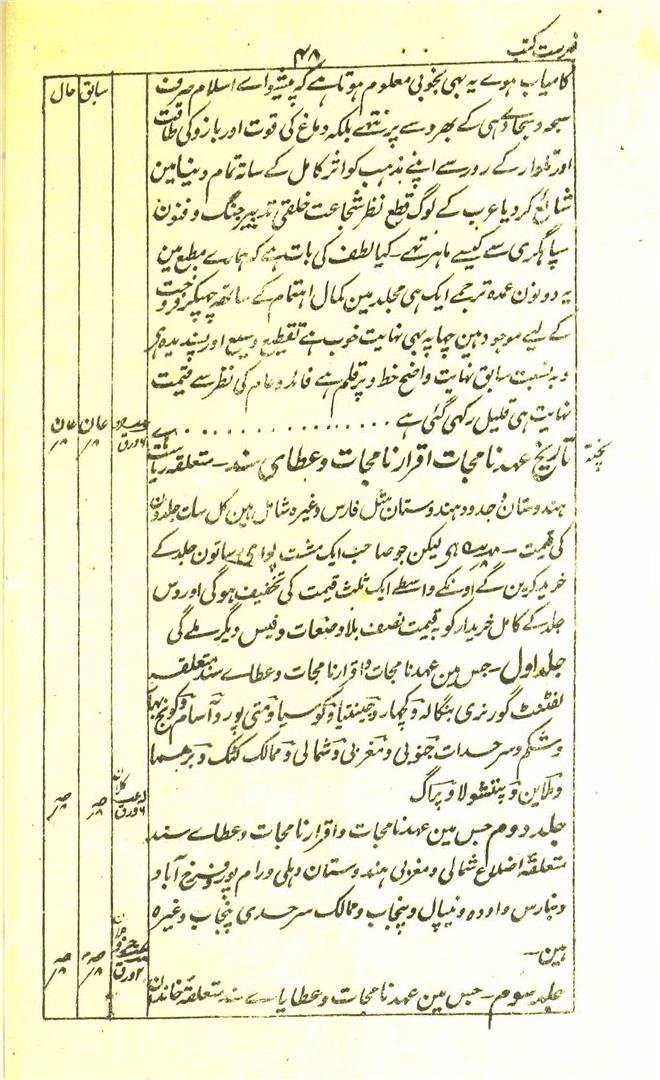 فہرست کتب
۴۸
سابق حال
کامیاب ہوے یہ بھی بخوبی معلوم ہوتا ہے کہ پیشواے اسلام صرف
سبحہ و سجادہ ہی کے بھروسے پر نتھے بلکہ دماغ کی قوت اور بازو کی طاقت
اور تلوار کے زور سے اپنے مذہب کو اثر کامل کے ساتہ تمام دنیا مین
شائع کر دیا عرب کے لوگ قطع نظر شجاعت خلقی تدبیر جنگ و فنون
سپاہگری سے کیسے ماہر تہے۔ کیا لطف کی بات ہے کہ ہمارے مطبع مین
یہ دونون عمدہ ترجمے ایک ہی مجلد مین کمال اہتمام کے ساتھ چھپکر فروخت
کے لیے موجود ہین چھاپہ بھی نہایت خوب ہے تقطیع وسیع اور پسندیدہ ہی
و بہ نسبت سابق نہایت واضح خط و پر قلم ہے فائدہ عام کی نظر سے قیمت
نہایت ہی قلیل رکھی گئی ہے
تاریخ عہدنامجات اقرارنامجات و عطاے سند۔ متعلقہ ریاست ہاے
ہندوستان و حدود ہندوستان مثل فارس وغیرہ شامل ہین کل سات جلدون
کی قیمت۔ ہی لیکن جو صاحب ایک مشت پوری ساتون جلد کے
خرید کرین گے اونکے واسطے ایک ثلث قیمت کی تخفیف ہوگی اور دس
جلد کے کامل خریدار کو بہ قیمت نصف بلا وضعات و فیس دیگر ملے گی
جلد اول۔ جس مین عہدنامجات و اقرارنامجات و عطاے سند متعلقہ
لفٹنٹ گورنری بنگالہ و کچھار و جینتیا و کوسیا و منی پور و آسام و کوچ بہار
و سکم و سرحدات جنوبی و مغربی و شمالی و ممالک کٹک و برہما
و ملاین و پننشولا و پراگ
جلد دوم جس مین عہدنامجات و اقرارنامجات و عطاے سند
متعلقہ اضلاع شمالی و مغربی ہندوستان دہلی و رام پور و فرخ آباد
و بنارس و اودہ و نیپال و پنجاب و ممالک سرحدی پنجاب وغیرہ
ہین۔
جلد سوم۔ جس مین عہدنامجات و عطایاے سند متعلقہ خاندان